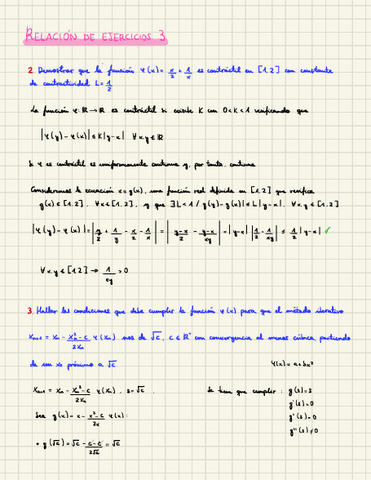 RELACIÓN DE EJERCICIOS 3
2. Demostrar que la función φ(x) = x/2 + 1/x es contráctil en [1,2] con constante
de contractividad L = 1/2
La función φ: ℝ → ℝ es contráctil si existe K con 0<K<1 verificando que
|φ(y) - φ(x)| ≤ K|y-x| ∀x,y ∈ ℝ
Si φ es contráctil es uniformemente continua y, por tanto, continua
Consideramos la ecuación x = g(x), una función real definida en [1,2] que verifica
g(x) ∈ [1,2], ∀x ∈ [1,2], y que ∃L<1 / |g(y)-g(x)| ≤ L|y-x|, ∀x,y ∈ [1,2]
|φ(y) - φ(x)| = |y/2 + 1/y - x/2 - 1/x| = |(y-x)/2 - (y-x)/xy| = |y-x| |1/2 - 1/xy| ≤ 1/2 |y-x| ✓
∀x,y ∈ [1,2] → 1/xy > 0
3. Hallar las condiciones que debe cumplir la función φ(x) para que el método iterativo
xₙ₊₁ = xₙ - (xₙ²-c)/2xₙ φ(xₙ) nos dé √c, c ∈ ℝ⁺ con convergencia al menos cúbica partiendo
de un x₀ próximo a √c
φ(x) = a+bx²
xₙ₊₁ = xₙ - (xₙ²-c)/2xₙ φ(xₙ), s = √c
Se tiene que cumplir: g(s) = s
g'(s) = 0
Sea g(x) = x - (x²-c)/2x φ(x):
g''(s) = 0
g'''(s) ≠ 0
• g(√c) = √c - (c-c)/2√c = √c